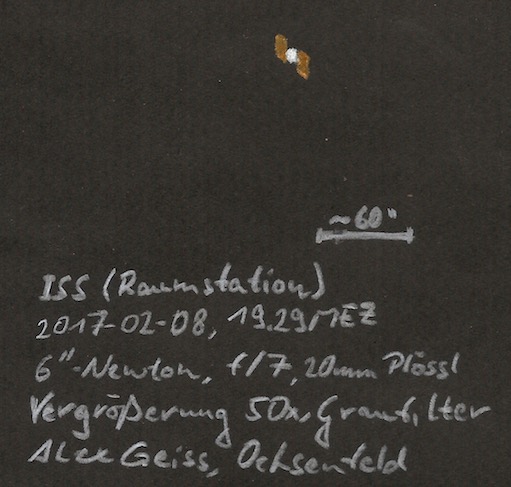 ~60"
ISS (Raumstation)
2017-02-08, 19.29 MEZ
6"-Newton, f/7, 20mm Plössl
Vergrößerung 50x, Graufilter
Alex Geiss, Ochsenfeld